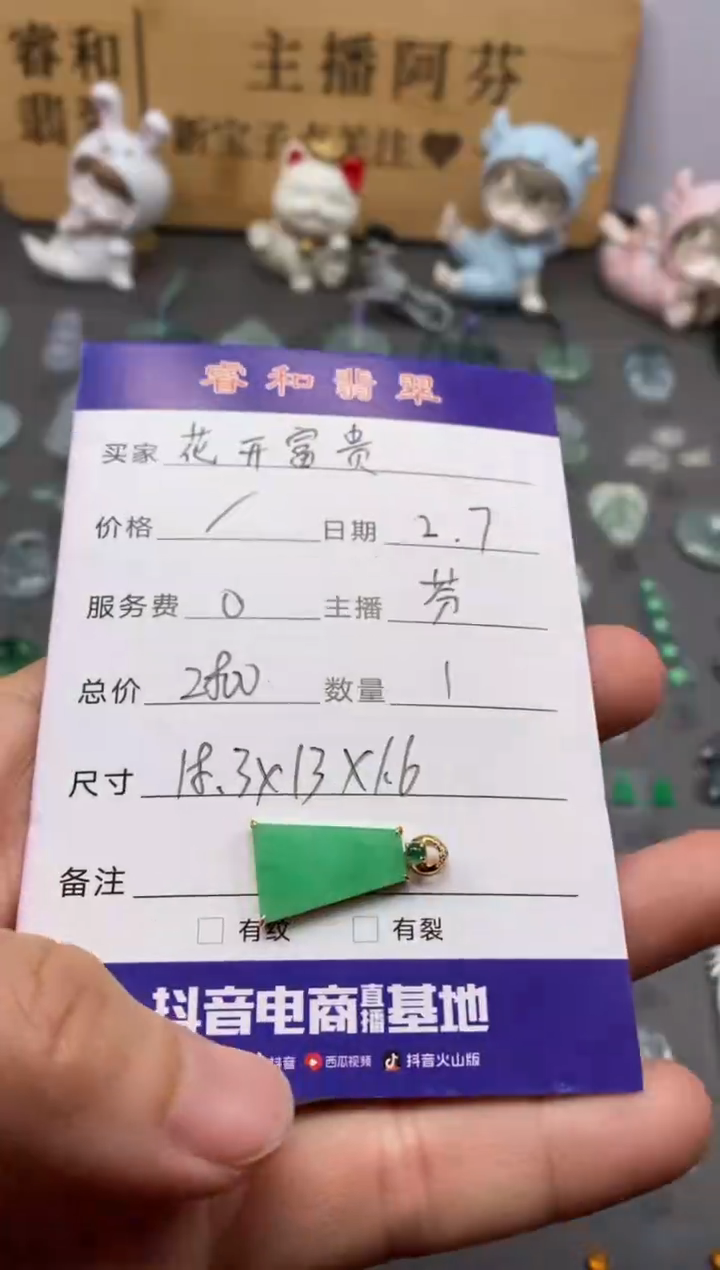 睿和 主播阿芬
翡翠 新宝子点关注
睿和翡翠
买家 花开富贵
价格 / 日期 2.7
服务费 0 主播 芬
总价 2800 数量 1
尺寸 18.3×13×1.6
备注
有纹 有裂
抖音电商直播基地
抖音 西瓜视频 抖音火山版